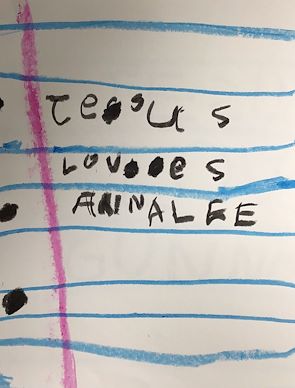 Jesus
LOVes
ANNALEE